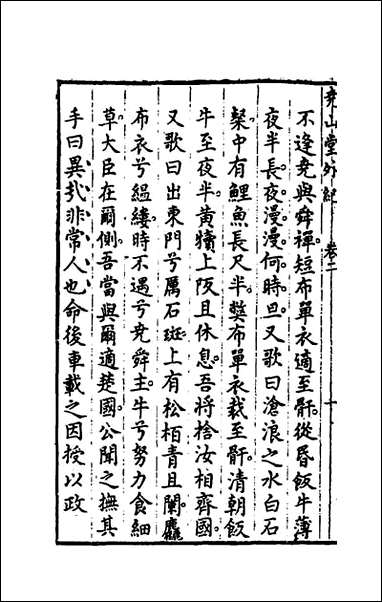 堯山堂外紀 卷二 一
不逢堯與舜禪短布單衣適至骭從昏飯牛薄
夜半長夜漫漫何時旦又歌曰滄浪之水白石
粲中有鯉魚長尺半獘布單衣裁至骭清朝飯
牛至夜半黃犢上阪且休息吾將捨汝相齊國
又歌曰出東門兮厲石斑上有松栢青且闌麤
布衣兮縕縷時不遇兮堯舜主牛兮努力食細
草大臣在爾側吾當與爾適楚國公聞之撫其
手曰異哉非常人也命後車載之因授以政